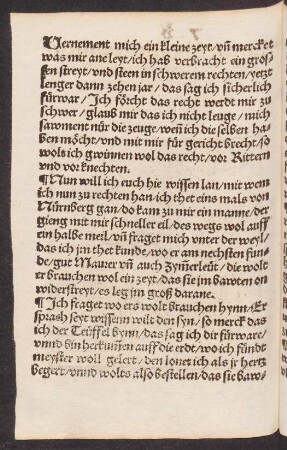 Vernement mich ein kleine zeyt/vñ mercket
was mir ane leyt/ich hab verbracht ein gros-
sen streyt/vnd steen in schwerem rechten/yetzt
lenger dann zehen jar/das sag ich sicherlich
fürwar/Ich förcht das recht werdt mir zu
schwer/glaub mir das ich nicht leuge/mich
sawment nür die zeuge/weñ ich die selben ha-
ben möcht/vnd mit mir für gericht brecht/so
wolt ich gwinnen wol das recht/vor Rittern
vnd vor knechten.
¶Nun will ich euch hie wissen lan/mit wem
ich nun zu rechten han/ich thet eins mals von
Nürnberg gan/do kam zu mir ein manne/der
gieng mit mir schneller eil/des wegs wol auff
ein halbe meil/vñ fraget mich vnter der weyl/
das ich jm thet kunde/wo er am nechsten fun-
de/gut Maurer vñ auch Zymerleüt/die wolt
er brauchen wol ein zeyt/das sie jm bawten on
widerstreyt/es leg jm groß darane.
¶Ich fraget wo ers wolt brauchen hynn/Er
sprash seyt wissenn wilt den syn/so merck das
ich der Teüffel bynn/das sag ich dir fürware/
vnnd bin herkuñen auff die erdt/wo ich fündt
meyster woll gelert/den lonet ich als jr hertz
begert/vnnd wolts also bestellen/das sie baw-